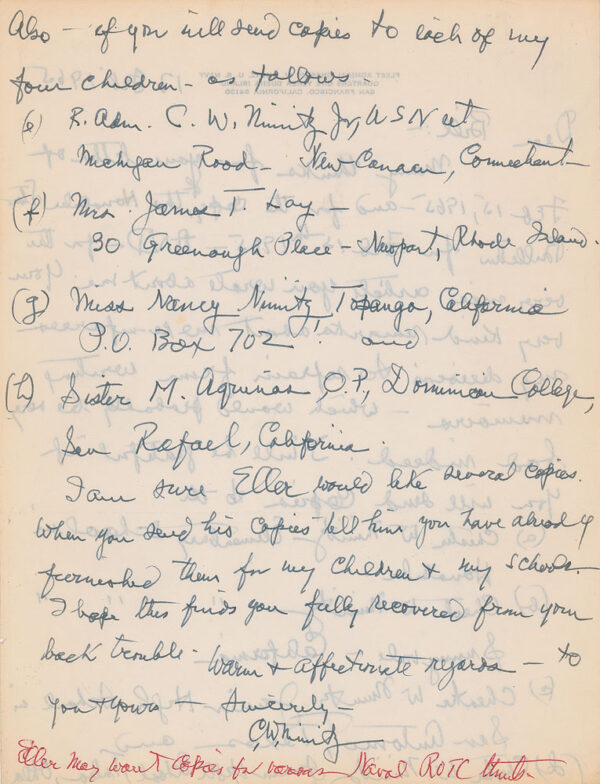 Also - if you will send copies to each of my
four children - as follows -
(e) R. Adm. C. W. Nimitz Jr, USN ret
Michigan Road - New Canaan, Connecticut -
(f) Mrs. James T. Lay -
30 Greenough Place - Newport, Rhode Island.
(g) Miss Nancy Nimitz, Topanga, California
P.O. Box 702 and
(h) Sister M. Aquinas O.P., Dominican College,
San Rafael, California.
I am sure Eller would like several copies.
When you send his copies tell him you have already
furnished them for my children & my schools.
I hope this finds you fully recovered from your
back trouble - Warm & affectionate regards - to
you & yours - Sincerely -
C.W. Nimitz
Eller may want copies for various Naval ROTC Units -